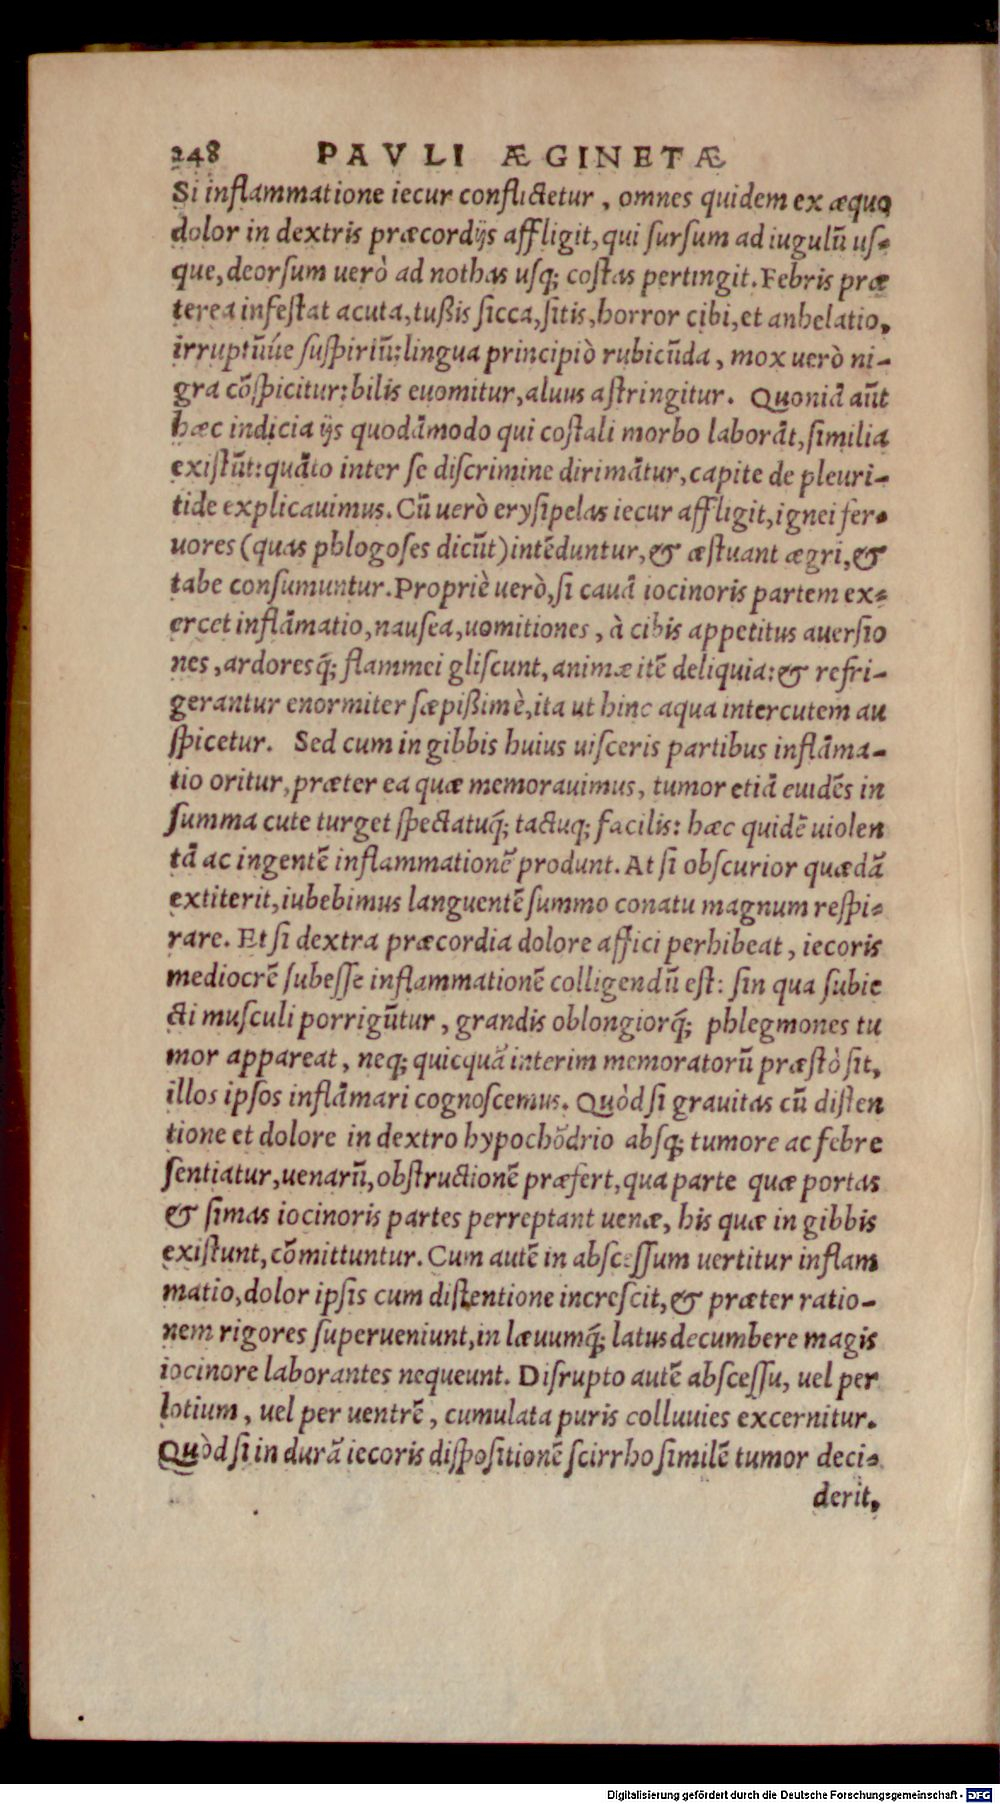 248 PAVLI ÆGINETÆ
Si inflammatione iecur conflictetur, omnes quidem ex æquo
dolor in dextris præcordijs affligit, qui sursum ad iugulū us-
que, deorsum uerò ad nothas usq; costas pertingit. Febris præ
terea infestat acuta, tußis sicca, sitis, horror cibi, et anhelatio,
irruptūúe suspiriū: lingua principiò rubicūda, mox uerò ni-
gra cōspicitur: bilis euomitur, aluus astringitur. Quoniā aūt
hæc indicia ijs quodāmodo qui costali morbo laborāt, similia
existūt: quāto inter se discrimine dirimātur, capite de pleuri-
tide explicauimus. Cū uerò erysipelas iecur affligit, ignei fer-
uores (quas phlogoses dicūt) intēduntur, & æstuant ægri, &
tabe consumuntur. Propriè uerò, si cauā iocinoris partem ex-
ercet inflāmatio, nausea, uomitiones, à cibis appetitus auersio
nes, ardoresq́; flammei gliscunt, animæ itē deliquia: & refri-
gerantur enormiter sæpißimè, ita ut hinc aqua intercutem au
spicetur. Sed cum in gibbis huius uisceris partibus inflāma-
tio oritur, præter ea quæ memorauimus, tumor etiā euidēs in
summa cute turget spectatuq́; tactuq; facilis: hæc quidē uiolen
tā ac ingentē inflammationē produnt. At si obscurior quædā
extiterit, iubebimus languentē summo conatu magnum respi-
rare. Et si dextra præcordia dolore affici perhibeat, iecoris
mediocrē subesse inflammationē colligendū est: sin qua subie
cti musculi porrigūtur, grandis oblongiorq́; phlegmones tu
mor appareat, neq; quicquā interim memoratorū præstò sit,
illos ipsos inflāmari cognoscemus. Quòd si grauitas cū disten
tione et dolore in dextro hypochōdrio absq; tumore ac febre
sentiatur, uenarū, obstructionē præfert, qua parte quæ portas
& simas iocinoris partes perreptant uenæ, his quæ in gibbis
existunt, cōmittuntur. Cum autē in abscessum uertitur inflam
matio, dolor ipsis cum distentione increscit, & præter ratio-
nem rigores superueniunt, in læuumq́; latus decumbere magis
iocinore laborantes nequeunt. Disrupto autē abscessu, uel per
lotium, uel per uentrē, cumulata puris colluuies excernitur.
Quòd si in durā iecoris dispositionē scirrho similē tumor deci-
derit,
Digitalisierung gefördert durch die Deutsche Forschungsgemeinschaft - DFG